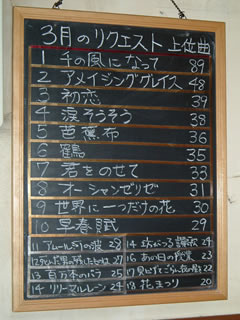 3月のリクエスト 上位曲
1 千の風になって 89
2 アメイジンググレイス 48
3 初恋 39
4 涙そうそう 38
5 芭蕉布 36
6 鶴 35
7 君をのせて 33
8 オーシャンゼリゼ 31
9 世界に一つだけの花 30
10 早春賦 29
11 アムール河の波 28
12 27
13 百万本のバラ 25
14 リリーマルレーン 24
14 24
16 あの日の 23
17 22
18 花まつり 20